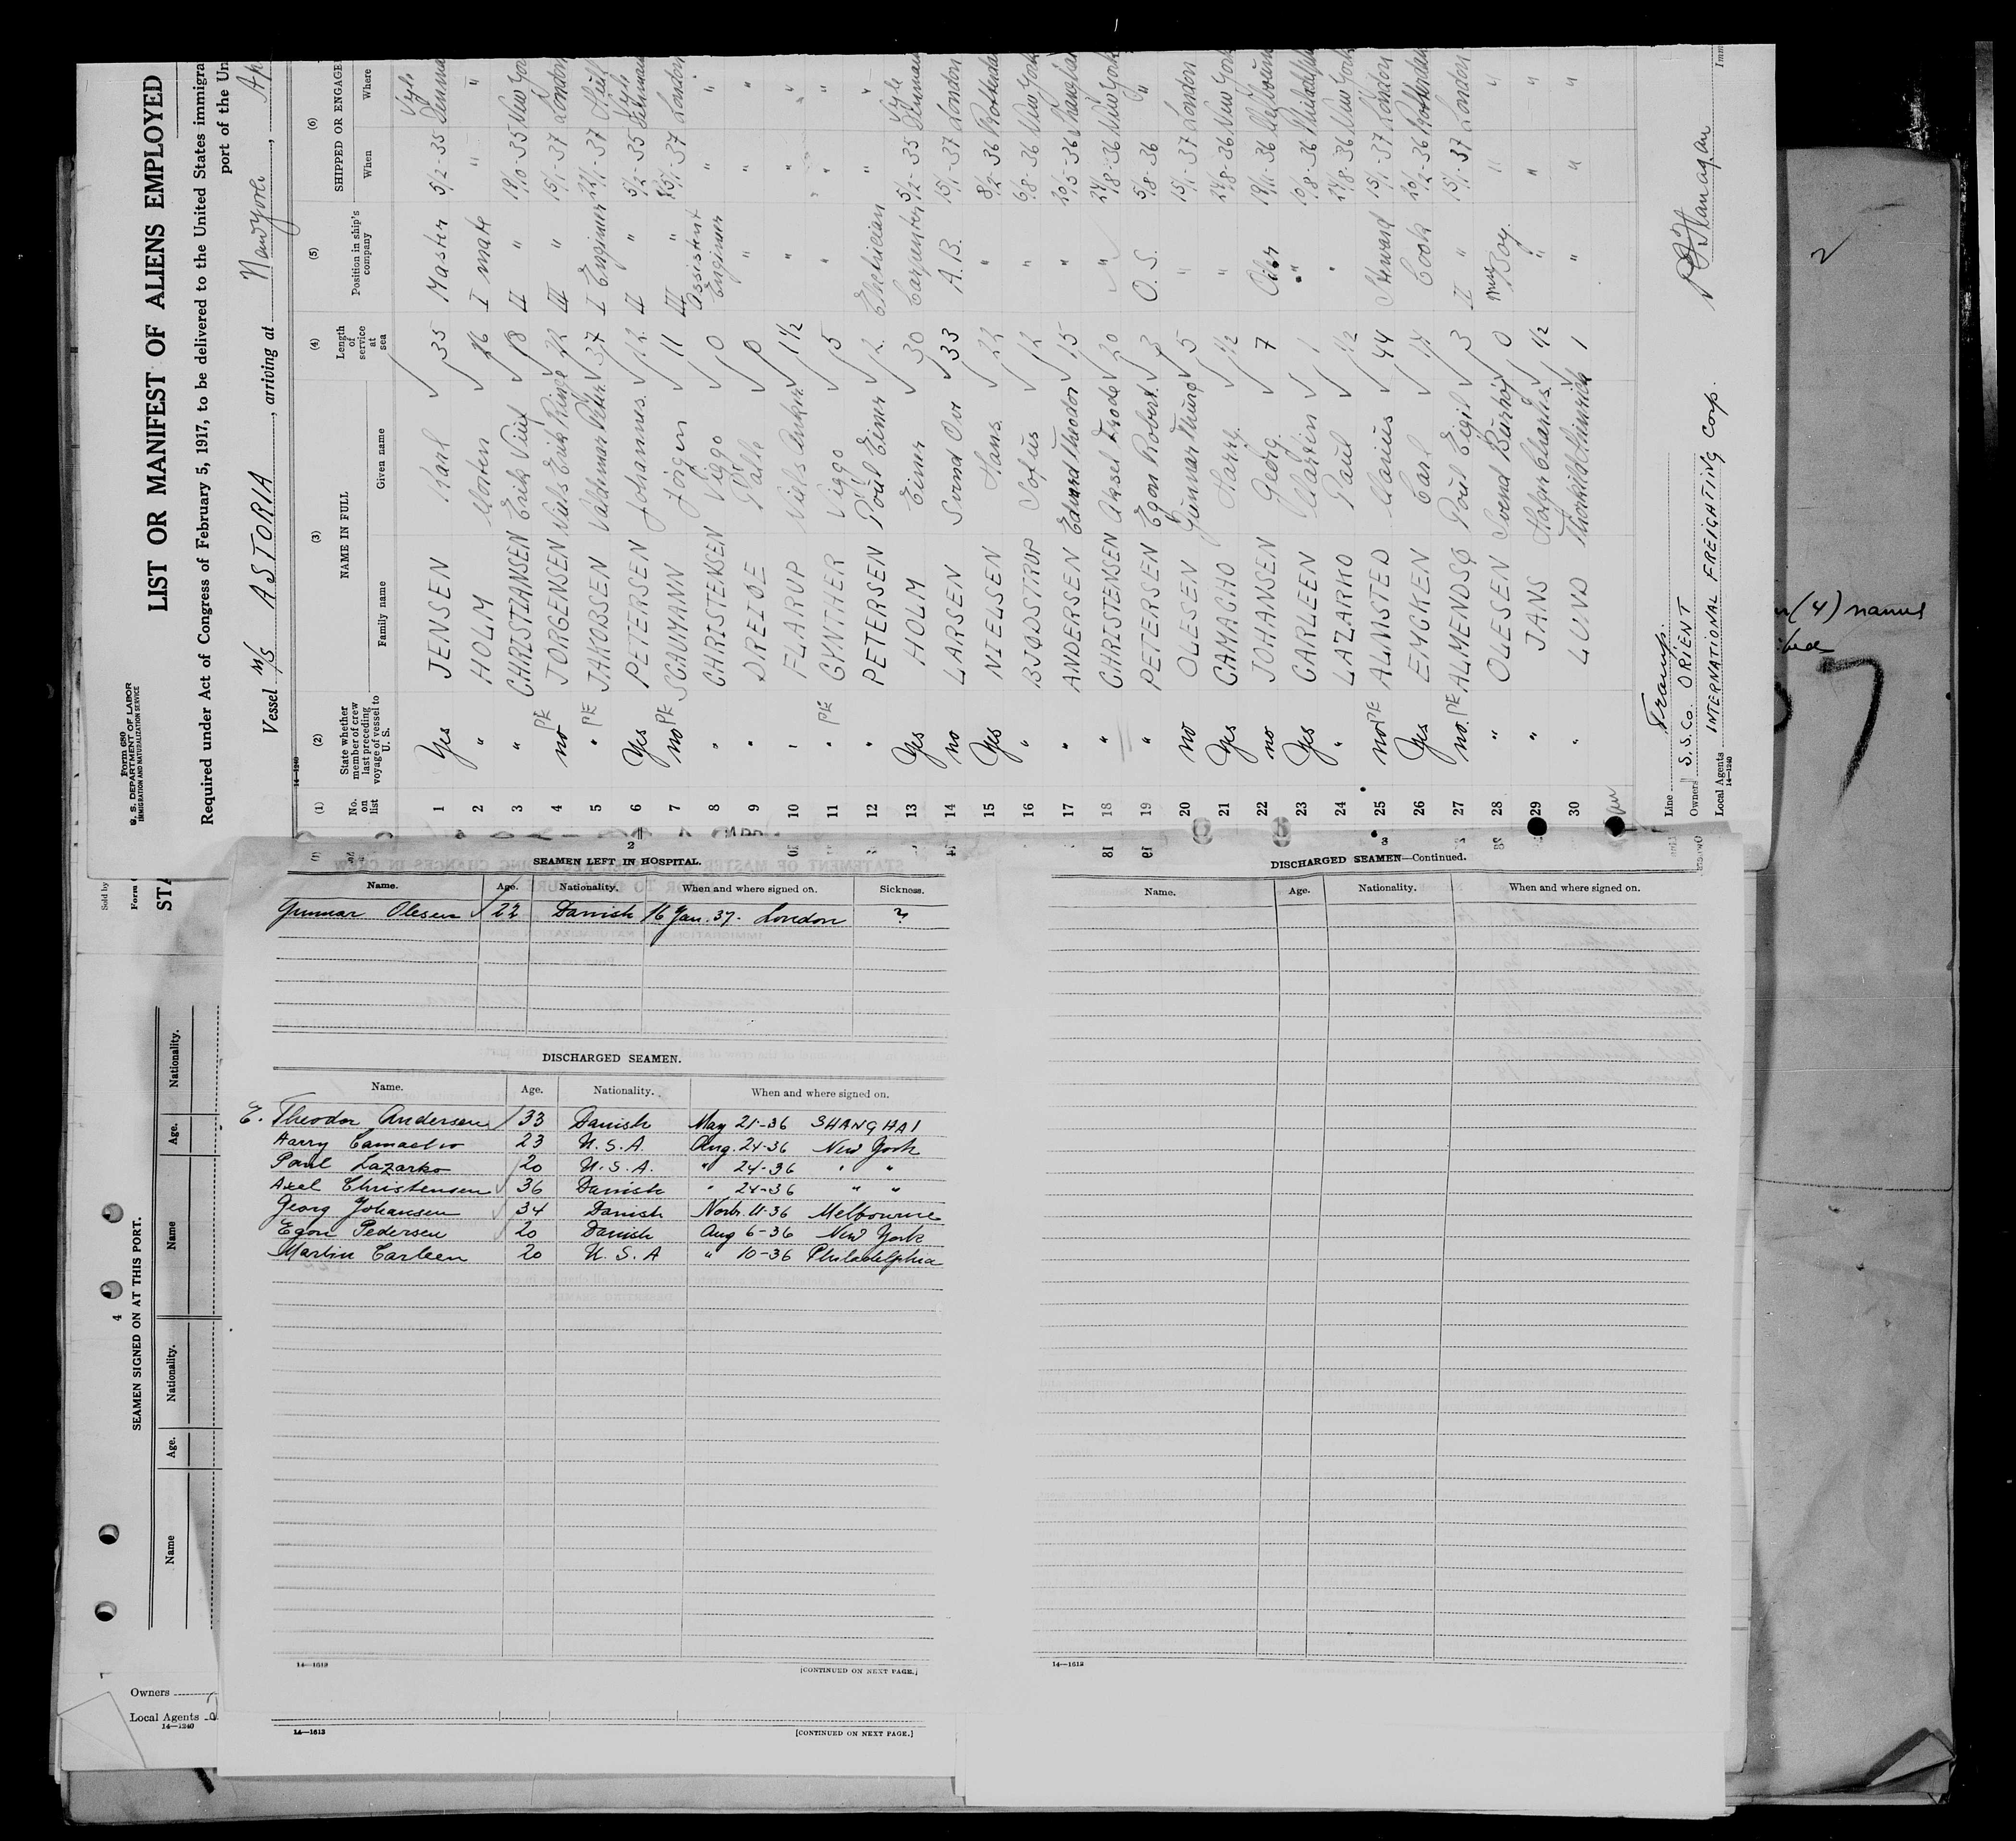 Form 680
U. S. DEPARTMENT OF LABOR
IMMIGRATION AND NATURALIZATION SERVICE
LIST OR MANIFEST OF ALIENS EMPLOYED
Required under Act of Congress of February 5, 1917, to be delivered to the United States immigra
port of the Un
Vessel M/S ASTORIA, arriving at New York, Ap
14—1240
(1) (2) (3) (4) (5) (6)
No. on list
State whether member of crew last preceding voyage of vessel to U. S.
NAME IN FULL
Family name Given name
Length of service at sea
Position in ship's company
SHIPPED OR ENGAGE
When Where
1 Yes JENSEN Karl 35 Master 5/2-35 Denma
2 " HOLM Morten 26 I mate " "
3 " CHRISTIANSEN Erik 18 II " 19/10-35 New Yor
4 no PE JORGENSEN Niels Erik 22 III " 15/1-37 London
5 " PE JAKOBSEN Valdemar 37 I Engineer 22/1-37
6 Yes PETERSEN Johannes 12 II " 5/2-35 Denmar
7 no PE SCAUMANN Jörgen 11 III " 15/1-37 London
8 " CHRISTENSEN Viggo 0 Assistent Engineer " "
9 " DREIOE Palle 0 " " "
10 " FLARUP Niels 1 1/2 " " "
11 " PE GYNTHER Viggo 5 " " "
12 " PETERSEN Poul Einer 12 Electrician " "
13 Yes HOLM Einer 30 Carpenter 5/2-35 Denmar
14 no LARSEN Svend Ove 33 A.B. 15/1-37 London
15 Yes NIELSEN Hans 22 " 8/2-36 Rotterda
16 " BJØDSTRUP Sofus 12 " 6/8-36 New York
17 " ANDERSEN Edvard Theodor 15 " 20/5-36 Shanghai
18 " CHRISTENSEN Aksel Frode 20 " 24/8-36 New York
19 " PETERSEN Egon Robert 3 O.S. 5/8-36 "
20 no OLESEN Gunnar 5 " 15/1-37 London
21 Yes CAMACHO Harry 1/2 " 24/8-36 New York
22 no JOHANSEN Georg 7 Oiler 19/11-36 Melbourn
23 Yes CARLEEN Martin 1 " 10/8-36 Philadelph
24 " LAZARKO Paul 1/2 " 24/8-36 New York
25 no PE ALMSTED Marius 44 Steward 15/1-37 London
26 Yes EMCKEN Carl 17 Cook 20/2-36 Rotterdam
27 no. PE ALMENDSØ Poul Eigil 3 II " 15/1-37 London
28 " OLESEN Svend 0 Mess Boy. " "
29 " JANS Holger Charles 1/2 " " "
30 " LUND Thorkild 1 " " "
Line Tramp.
Owners S.S.Co. ORIENT
Local Agents INTERNATIONAL FREIGHTING Corp.
14—1240
Imm
(4) names
2
SEAMEN LEFT IN HOSPITAL.
Name. Age. Nationality. When and where signed on. Sickness.
Gunnar Olesen 22 Danish 16 Jan. 37. London ?
DISCHARGED SEAMEN.
Name. Age. Nationality. When and where signed on.
E. Theodor Andersen 33 Danish May 21-36 SHANGHAI
Harry Camacho 23 U.S.A. Aug. 24-36 New York
Paul Lazarko 20 U.S.A. " 24-36 " "
Axel Christensen 36 Danish " 24-36 " "
Georg Johansen 34 Danish Novb. 11-36 Melbourne
Egon Pedersen 20 Danish Aug 6-36 New York
Martin Carleen 20 U.S.A " 10-36 Philadelphia
14—1613 [CONTINUED ON NEXT PAGE.]
14—1613 [CONTINUED ON NEXT PAGE.]
3
DISCHARGED SEAMEN—Continued.
Name. Age. Nationality. When and where signed on.
14—1613
Sold by
Form
STA
4
SEAMEN SIGNED ON AT THIS PORT.
Name Age. Nationality. Name Age. Nationality.
Owners
Local Agents
14—1240